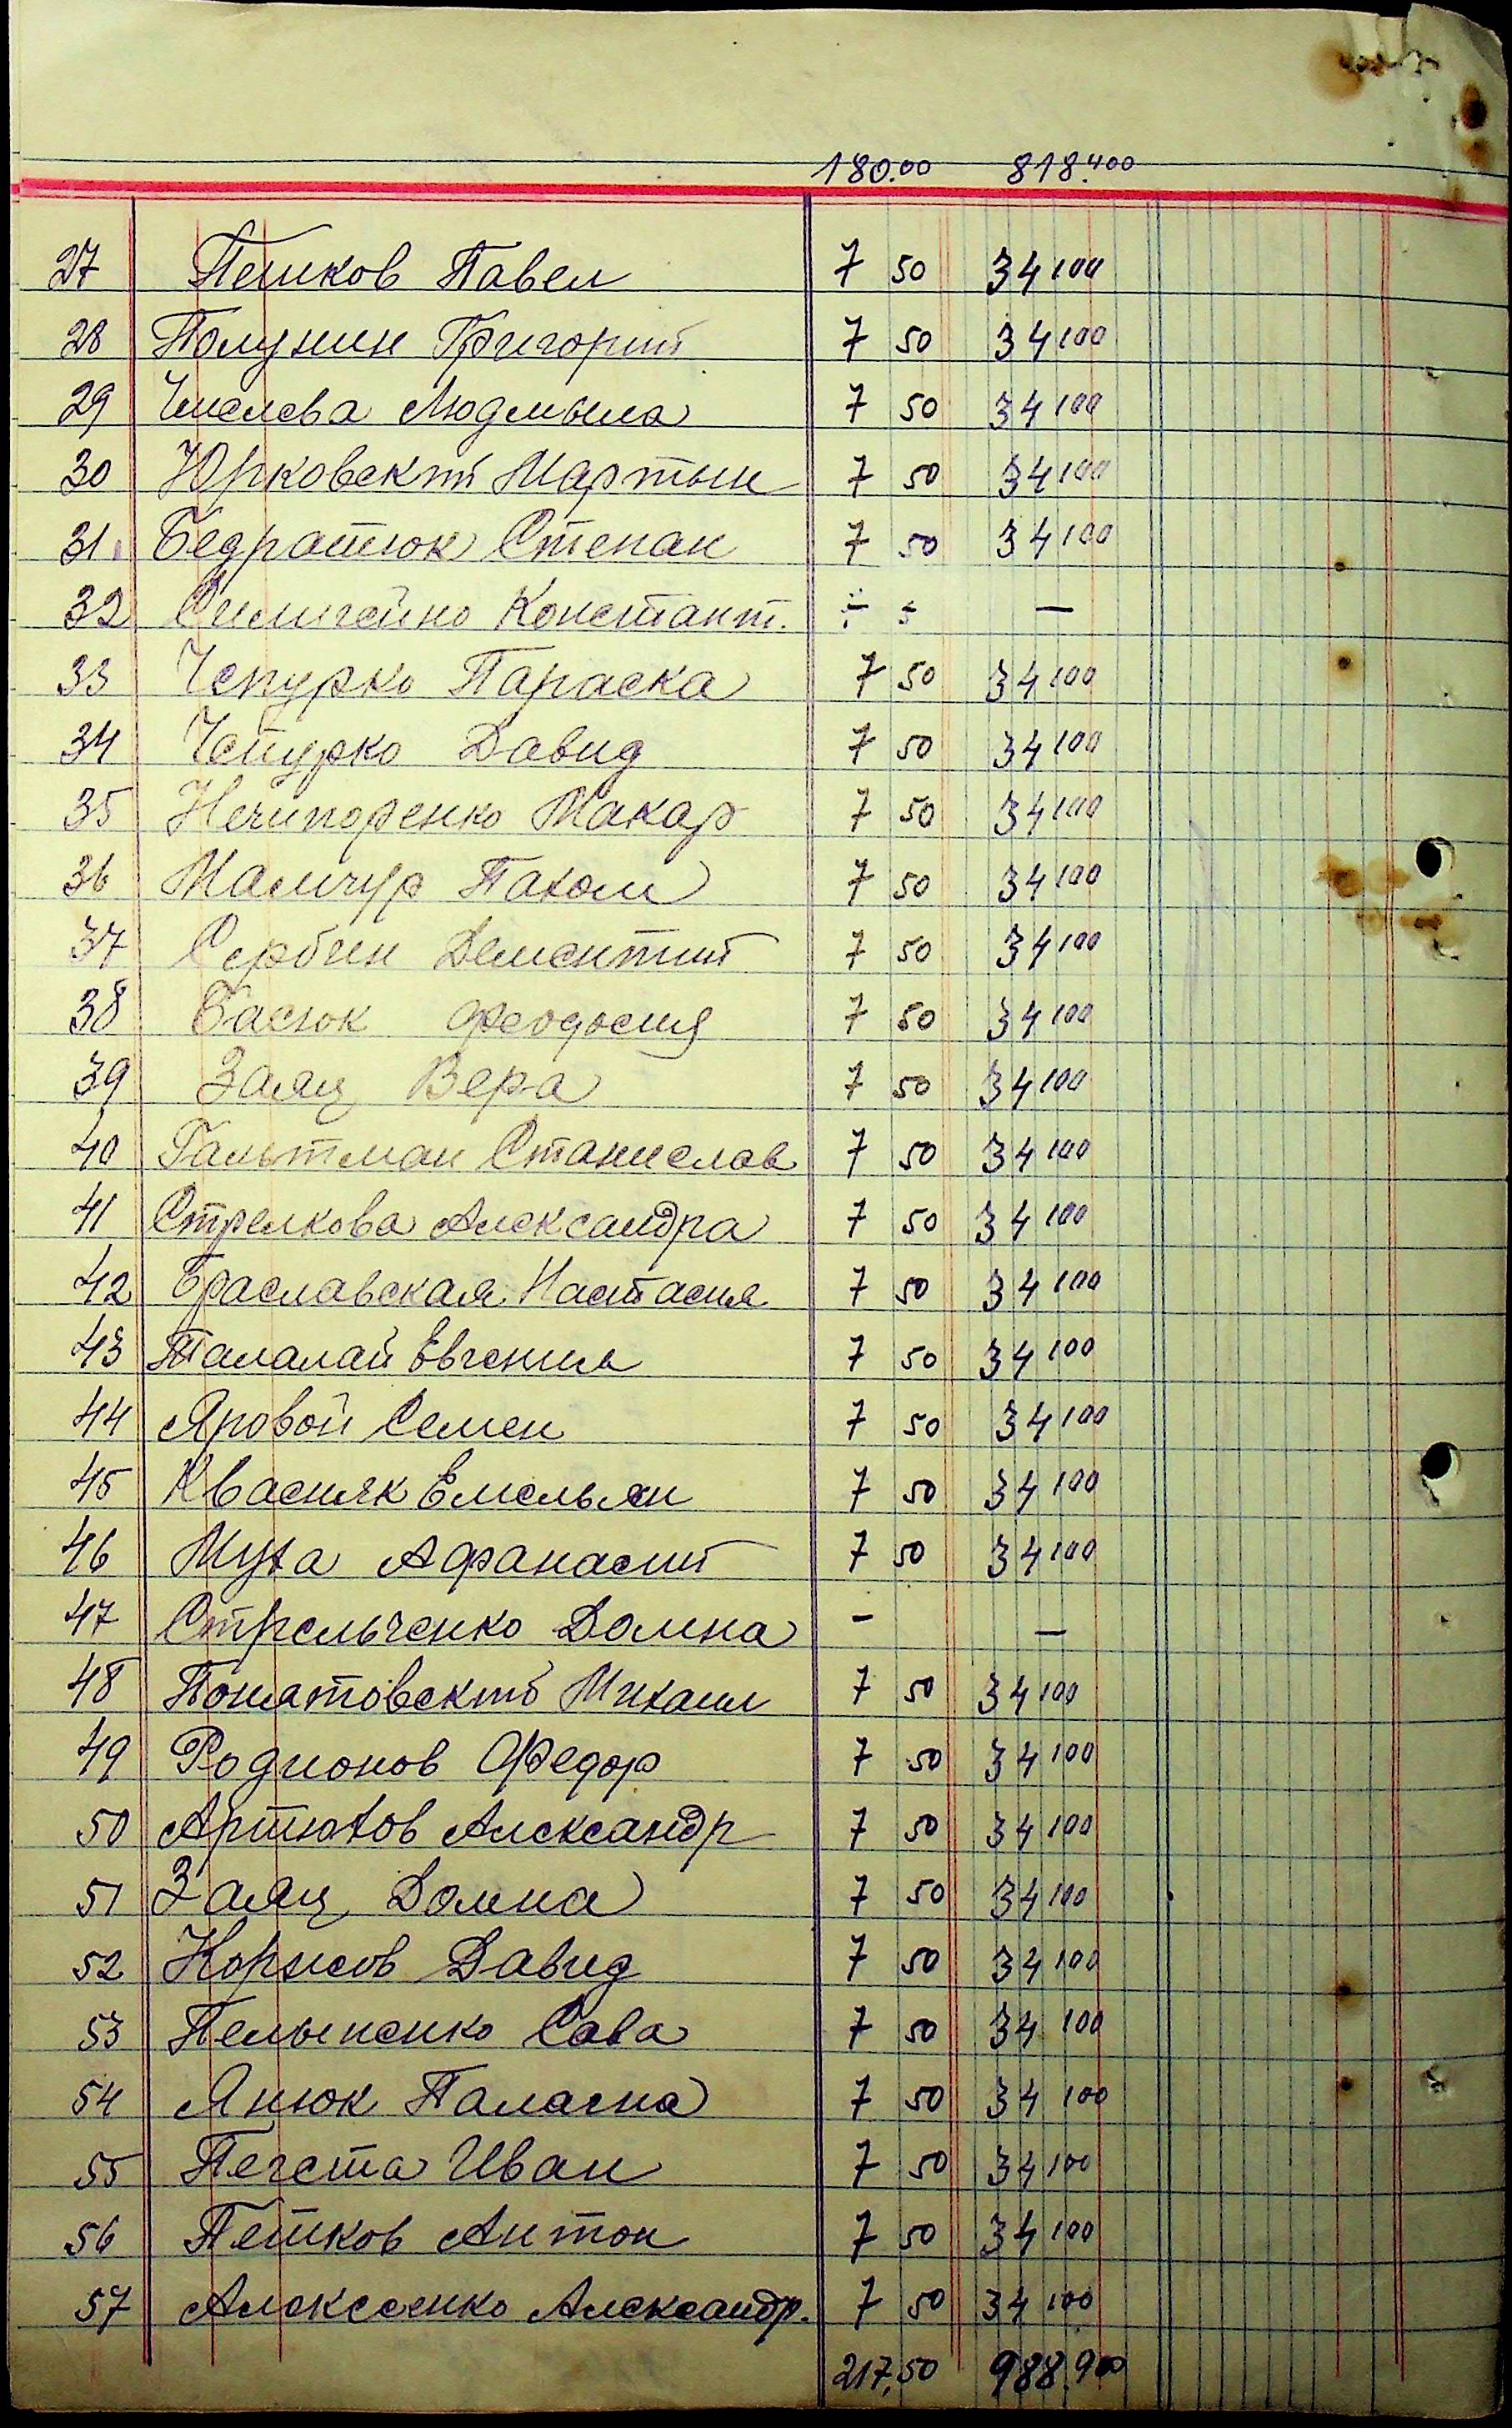 180.00 818.400
27 Пешков Павел 7 50 34 100
28 Полунин Григорий 7 50 34 100
29 Людмыла 7 50 34 100
30 Юрковский Мартын 7 50 34 100
31. Бедратюк Степан 7 50 34 100
32 Констант. ÷ ÷ —
33 Чепурко Параска 7 50 34 100
34 Чепурко Давид 7 50 34 100
35 Нечипоренко Макар 7 50 34 100
36 Мамчур Пахом 7 50 34 100
37 Сербин Дементий 7 50 34 100
38 Басюк Феодосия 7 50 34 100
39 Заяц Вера 7 50 34 100
40 Гальтман Станислав 7 50 34 100
41 Стрелкова Александра 7 50 34 100
42 Браславская Настасия 7 50 34 100
43 Талалай Евгения 7 50 34 100
44 Яровой Семен 7 50 34 100
45 Квасняк Емельян 7 50 34 100
46 Муха Афанасий 7 50 34 100
47 Стрельченко Домна – —
48 Понятовский Михаил 7 50 34 100
49 Родионов Федор 7 50 34 100
50 Артюхов Александр 7 50 34 100
51 Заяц Домна 7 50 34 100
52 Давид 7 50 34 100
53 Сава 7 50 34 100
54 Янюк 7 50 34 100
55 Иван 7 50 34 100
56 Пешков Антон 7 50 34 100
57 Алексеенко Александр. 7 50 34 100
217,50 988.900